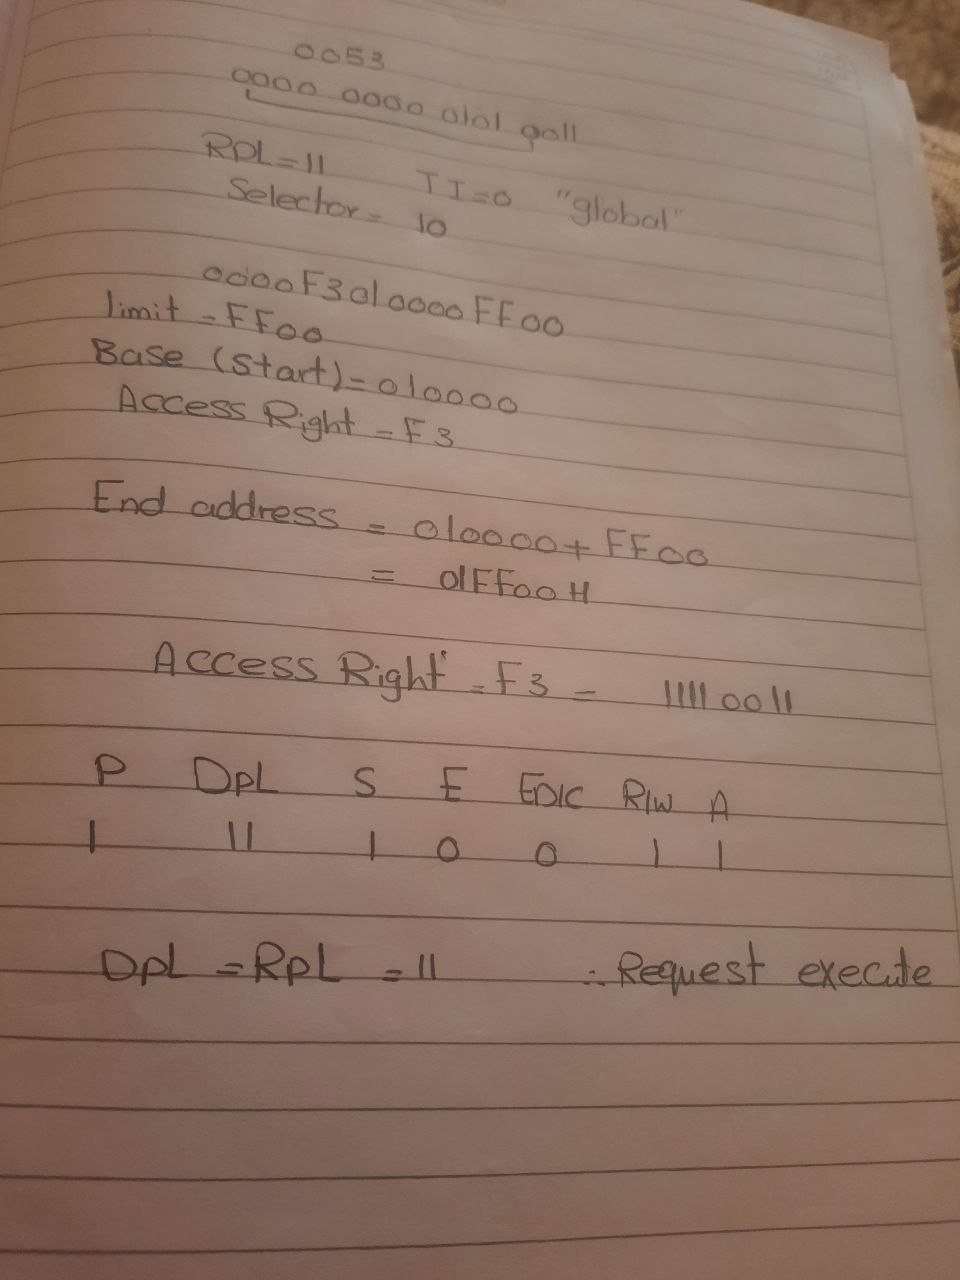 0053
0000 0000 0101 0011
RPL=11 TI=0 "global"
Selector= 10
0000F3010000FF00
limit = FF00
Base (start)=010000
Access Right = F3
End address = 010000+FF00
= 01FF00H
Access Right = F3 = 11110011
P DpL S E ED/C R/W A
1 11 1 0 0 1 1
DpL = RpL = 11 ∴ Request execute